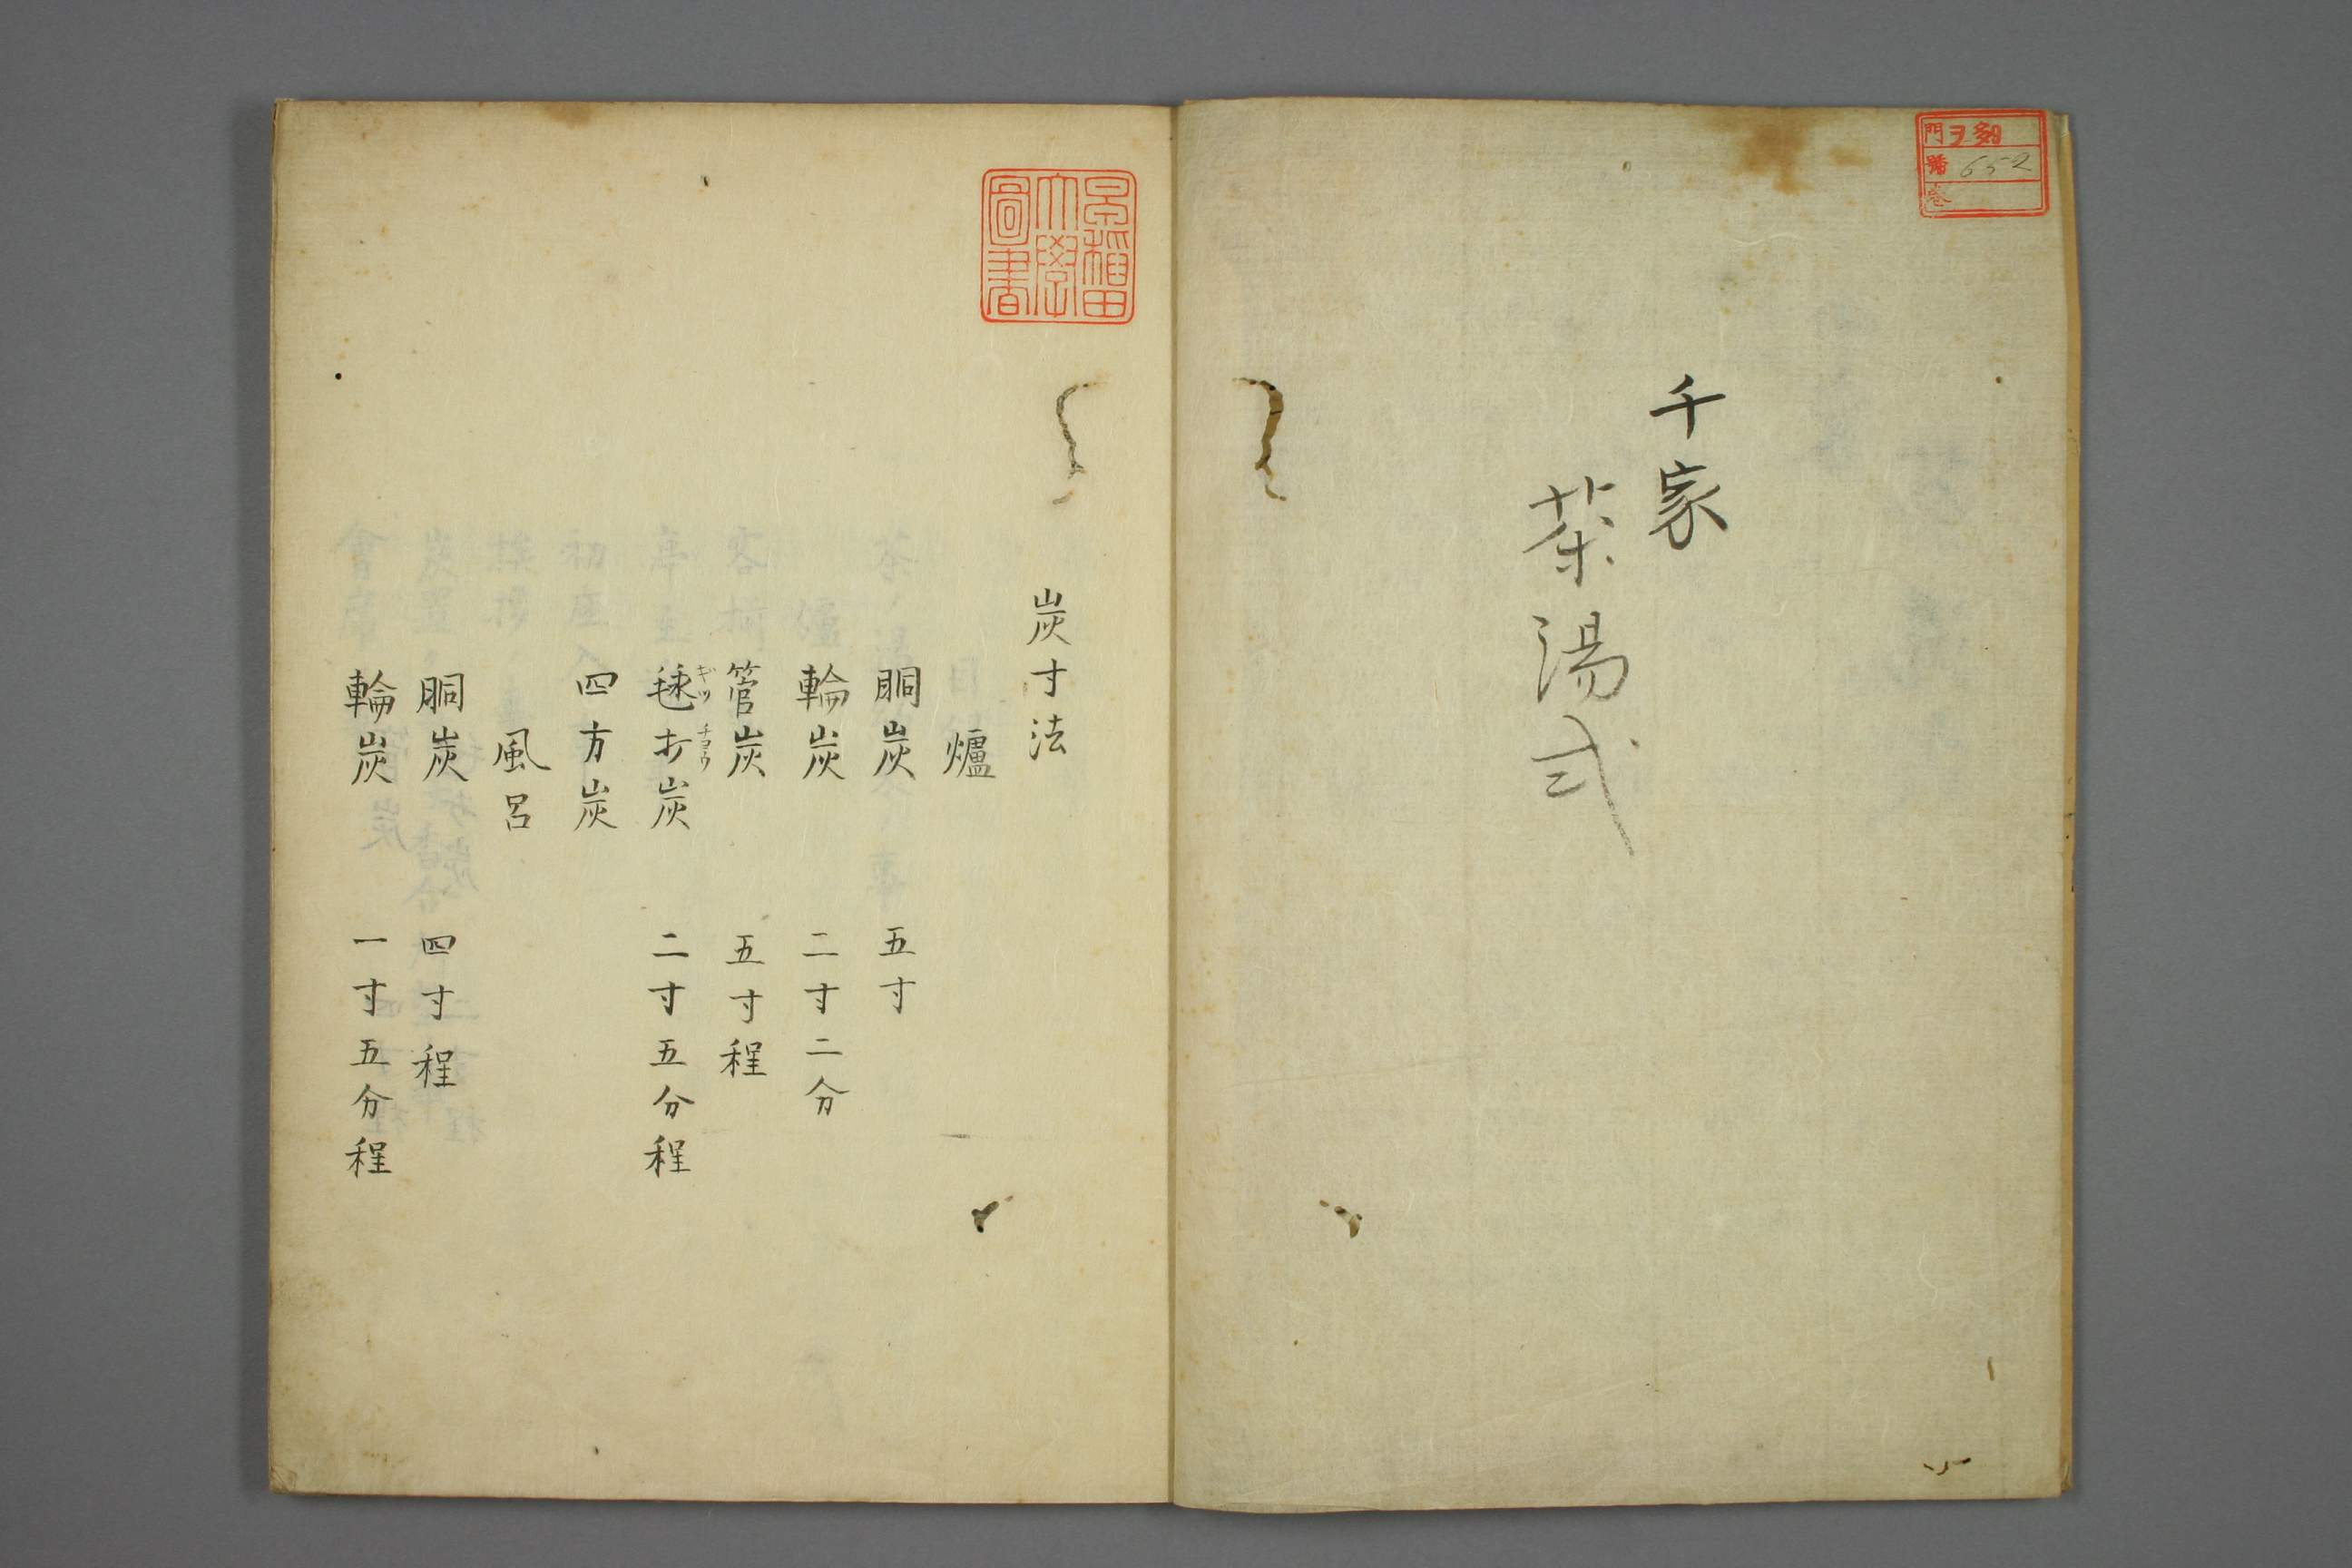 門 ヲ
號 652
巻
千家
茶湯式
早稲田
大學
圖書
炭寸法
爐
胴炭 五寸
輪炭 二寸二分
管炭 五寸程
毬打炭 二寸五分程
ギツチヨウ
四方炭
風呂
胴炭 四寸程
輪炭 一寸五分程